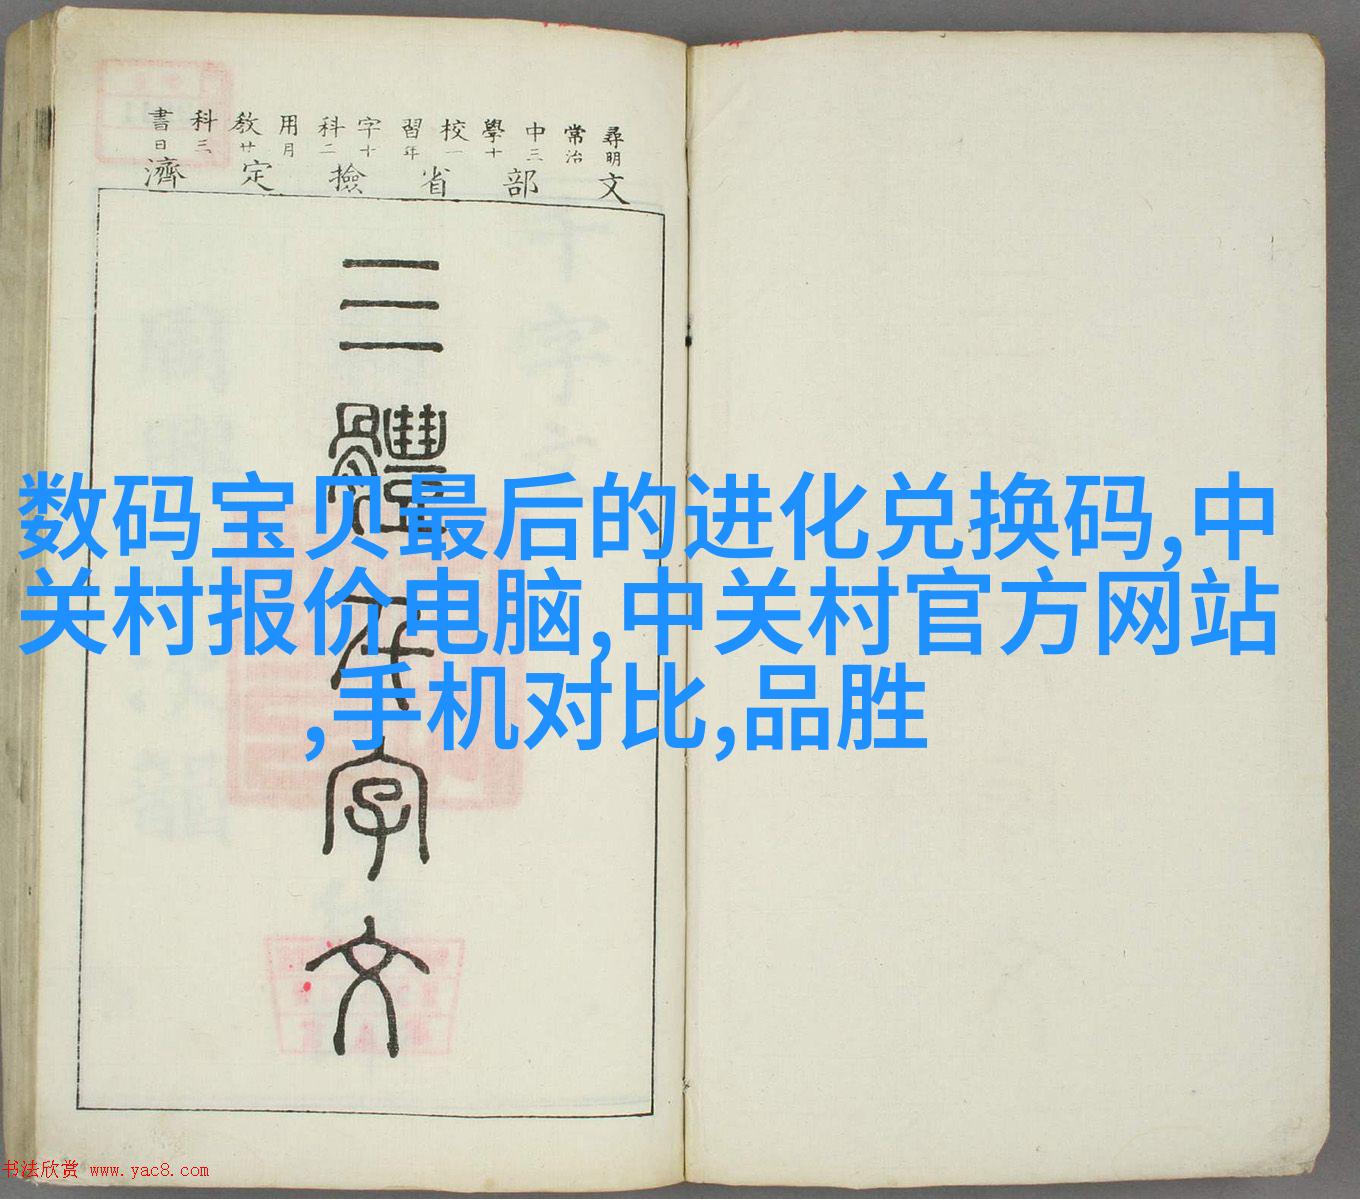 尋常中學校習字科用教科書
明治三十一年十二月廿三日
文部省檢定濟
三體千字文
数码宝贝最后的进化兑换码,中
关村报价电脑,中关村官方网站
,手机对比,品胜
书法欣赏 www.yac8.com